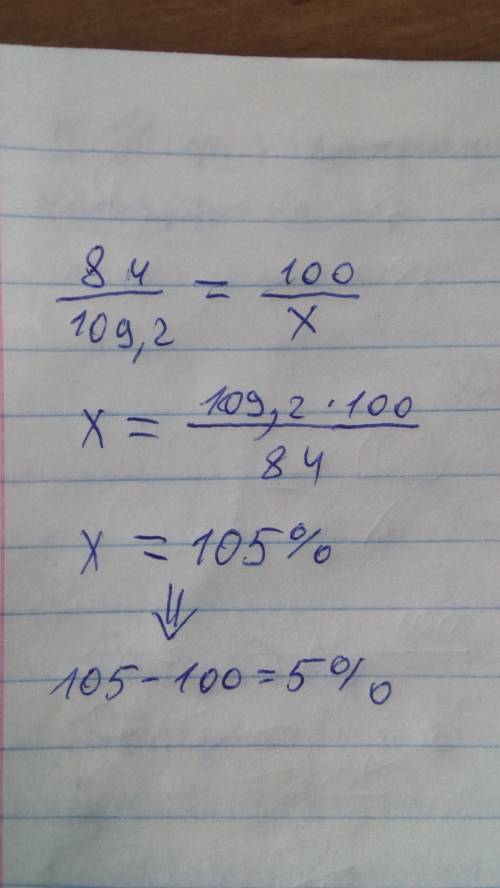 84/109,2 = 100/x
x = 109,2 · 100/84
x = 105%
⇓
105 - 100 = 5%